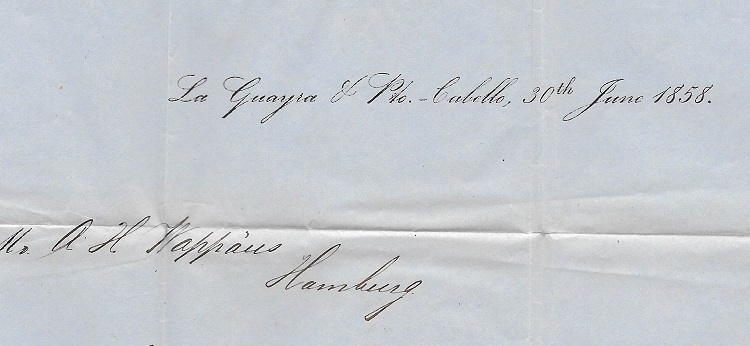 La Guayra & Pto.-Cabello, 30th June 1858.
Mr. A H Wappäus
Hamburg